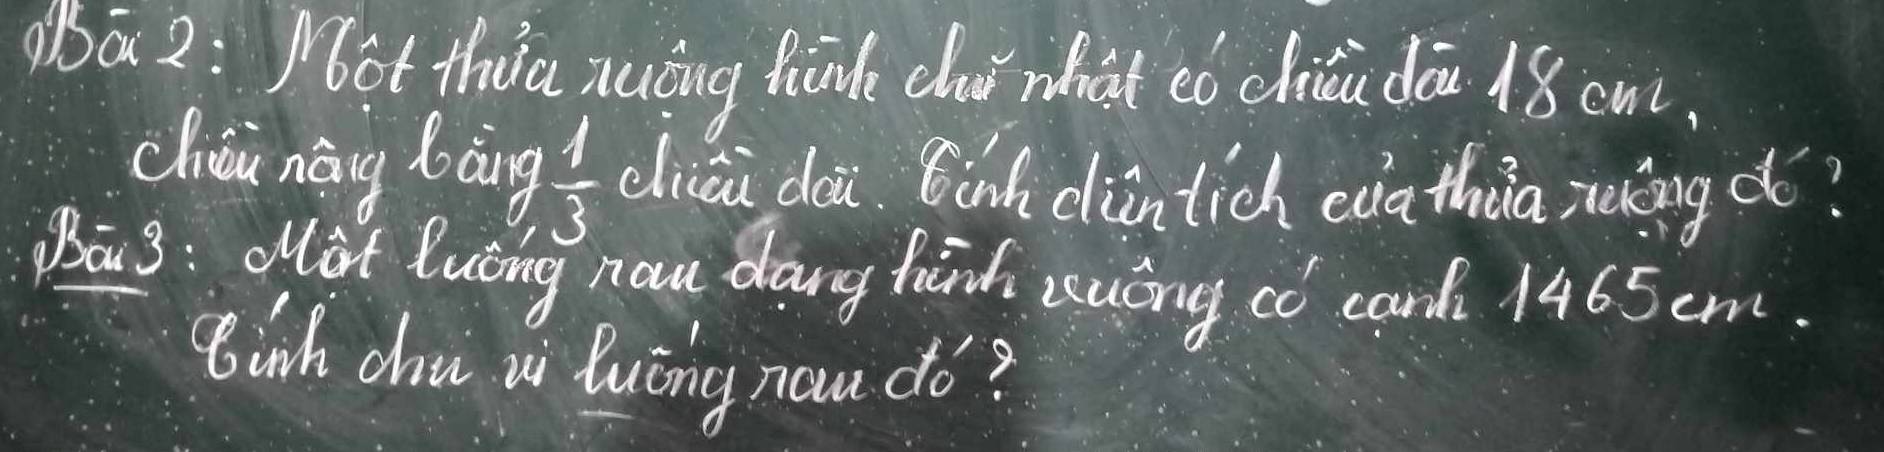 Bài 2: Một thửa ruộng hình chữ nhật có chiều dài 18 cm,
chiều rộng bằng 1/3 chiều dài. Tính diện tích của thửa ruộng đó?
Bài 3: Một luống rau dạng hình vuông có cạnh 1465 cm.
Tính chu vi luống rau đó?